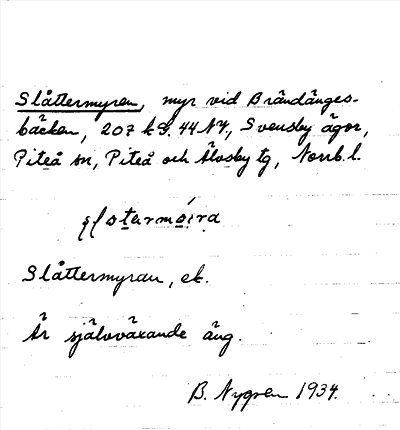 Slåttermyren, myr vid Brändänges-
bäcken, 207 k S. 44 NV, Svensby ägor,
Piteå sn, Piteå och Älvsby tg, Norrb. l.
Slåttermyran, ek.
Är självväxande äng.
B. Nygren 1934.